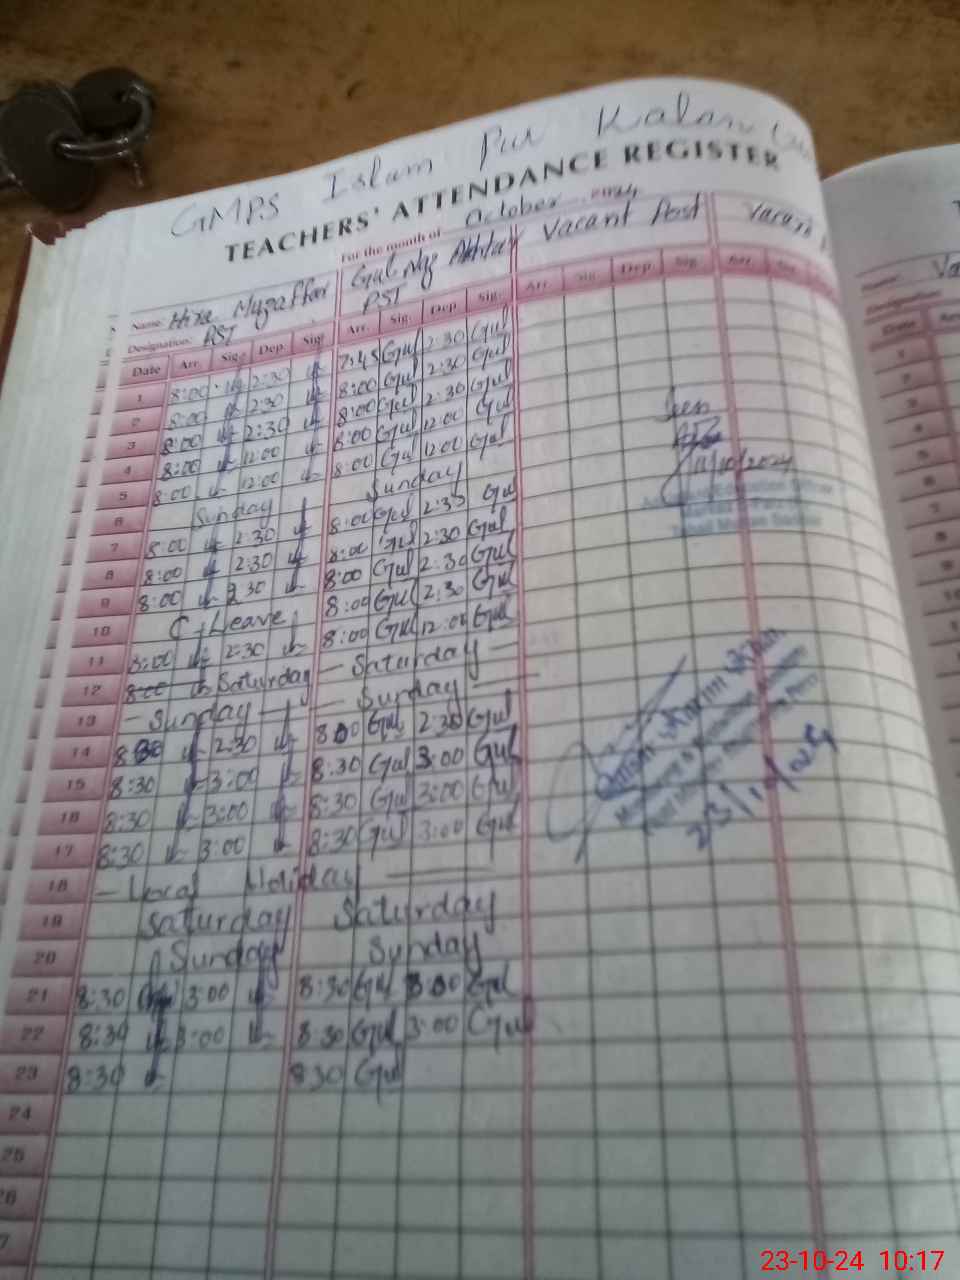 GMPS Islam Pur Kalan
TEACHERS' ATTENDANCE REGISTER
For the month of October 2024
Name: Hira Muzaffar Gul Naz Akhtar Vacant Post Vacant
Designation: PST PST
Date Arr. Sig. Dep. Sig. Arr. Sig. Dep. Sig. Arr. Sig. Dep. Sig. Arr. Sig.
1 8:00 2:30 7:45 Gul 2:30 Gul
2 8:00 2:30 8:00 Gul 2:30 Gul
3 8:00 2:30 8:00 Gul 2:30 Gul
4 8:00 12:00 8:00 Gul 12:00 Gul
5 8:00 12:00 8:00 Gul 12:00 Gul
6 Sunday Sunday
7 8:00 2:30 8:00 Gul 2:30 Gul
8 8:00 2:30 8:00 Gul 2:30 Gul
9 8:00 2:30 8:00 Gul 2:30 Gul
10 C-Leave 8:00 Gul 2:30 Gul
11 8:00 2:30 8:00 Gul 12:00 Gul
12 8:00 Saturday - Saturday -
13 - Sunday - - Sunday -
14 8:30 2:30 8:00 Gul 2:30 Gul
15 8:30 3:00 8:30 Gul 3:00 Gul
16 8:30 3:00 8:30 Gul 3:00 Gul
17 8:30 3:00 8:30 Gul 3:00 Gul
18 - Local Holiday -
19 Saturday Saturday
20 Sunday Sunday
21 8:30 3:00 8:30 Gul 3:00 Gul
22 8:30 3:00 8:30 Gul 3:00 Gul
23 8:30 830 Gul
24
25
26
Seen
11/10/2024
23/10/024
23-10-24 10:17